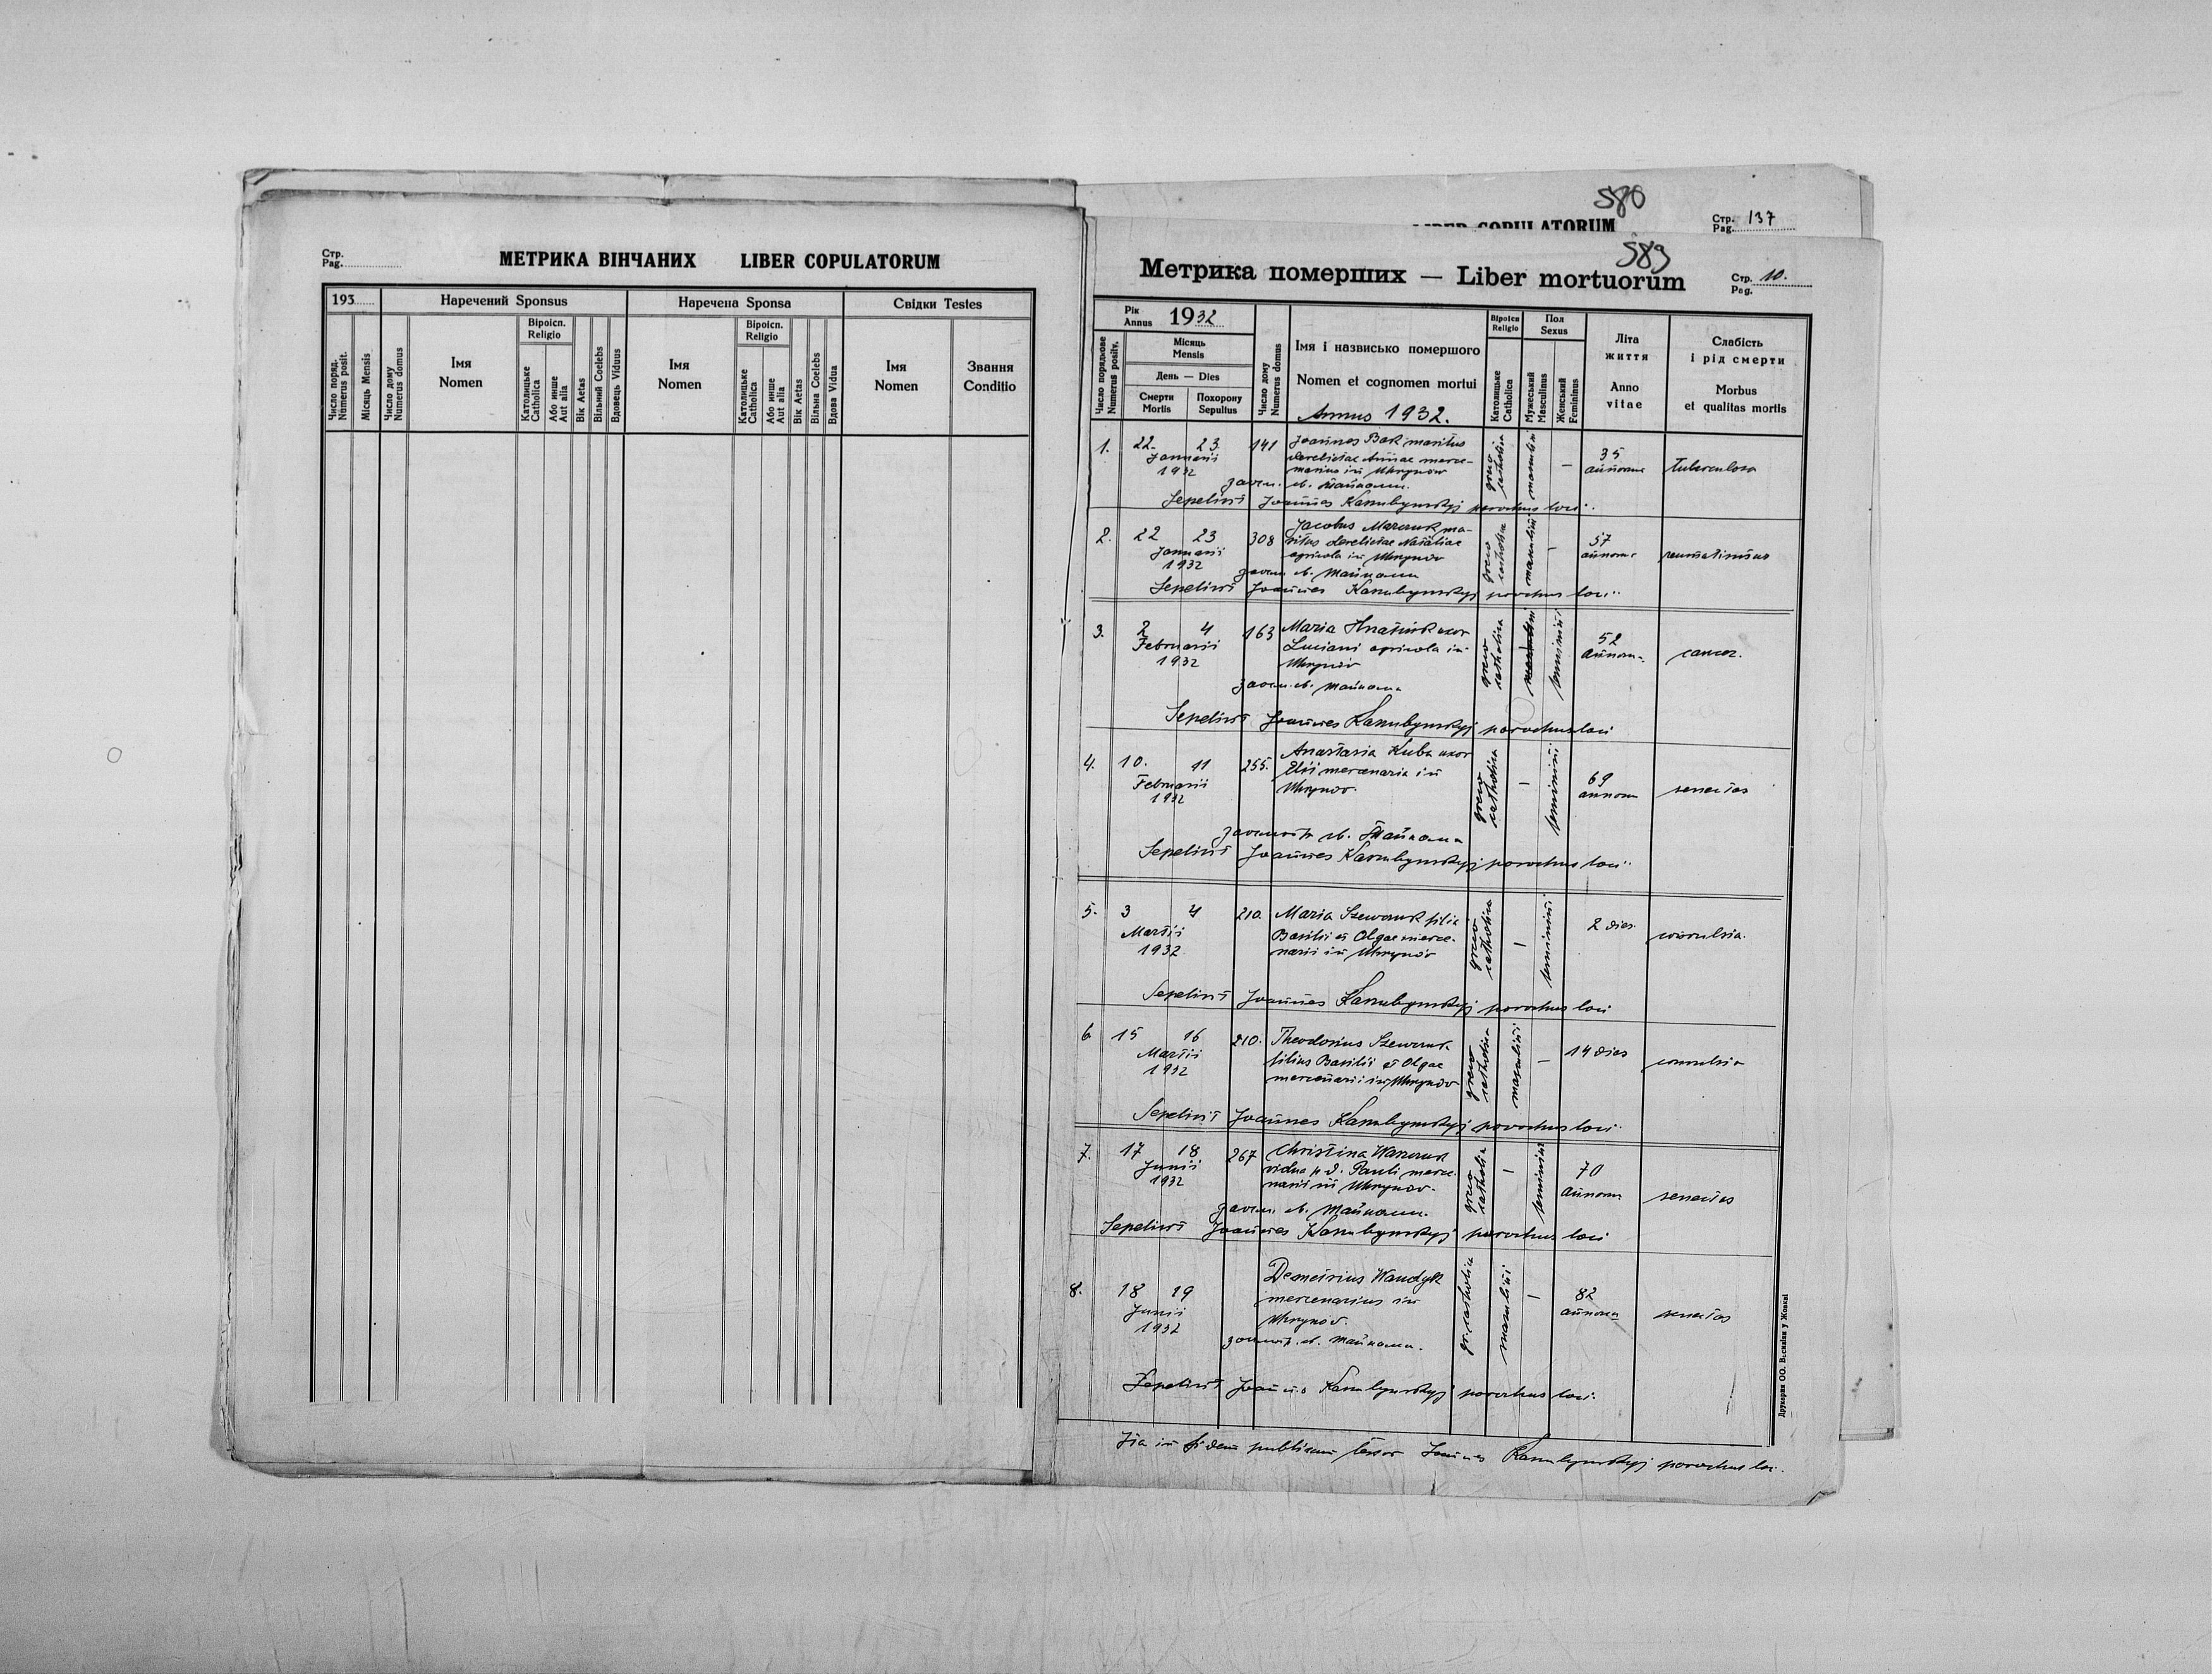 580
LIBER COPULATORUM
Стр. Pag. 137
Стр.
Pag.
МЕТРИКА ВІНЧАНИХ LIBER COPULATORUM
193
Наречений Sponsus
Наречена Sponsa
Свідки Testes
Число поряд.
Numerus posit.
Місяць Mensis
Число дому
Numerus domus
Імя
Nomen
Віроісп.
Religio
Католицьке
Catholica
Або инше
Aut alia
Вік Aetas
Вільний Coelebs
Вдовець Viduus
Імя
Nomen
Віроісп.
Religio
Католицьке
Catholica
Або инше
Aut alia
Вік Aetas
Вільна Coelebs
Вдова Vidua
Імя
Nomen
Звання
Conditio
589
Метрика померших — Liber mortuorum
Стр. 10.
Pag.
Рік
Annus 1932
Число порядкове
Numerus positv.
Місяць
Mensis
День — Dies
Смерти
Mortis
Похорону
Sepultus
Число дому
Numerus domus
Імя і назвисько помершого
Nomen et cognomen mortui
Annus 1932.
Віроісп
Religio
Католицьке
Catholica
Пол
Sexus
Мужеський
Masculinus
Женський
Femininus
Літа
життя
Anno
vitae
Слабість
і рід смерти
Morbus
et qualitas mortis
1. 22. 23 141 Joannes Bak maritus
Januarii derelictae Annae merce-
1932 narius in Uhrynów
greco catholica masculini — 35 annorum tuberculosa
заосм. св. Тайнами.
Sepelivit Joannes parochus loci
2. 22 23 308 Jacobus Marczuk ma-
Januarii ritus derelictae Nataliae
1932 agricola in Uhrynów
greco catholica masculini — 57 annorum reumatismus
заосм. св. Тайнами
Sepelivit Joannes parochus loci
3. 2 4 163 Maria Hnatiuk uxor
Februarii Luciani agricola in
1932 Uhrynów
greco catholica feminini 52 annorum cancer.
заосм. св. Тайнами
Sepelivit Joannes parochus loci
4. 10. 11 255. Anastasia Kuba uxor
Februarii Elii mercenaria in
1932 Uhrynov.
greco catholica — feminini 69 annorum senectus
св. Тайнами
Sepelivit Joannes parochus loci
5. 3 4 210 Maria Szewczuk filia
Martii Basilii et Olgae merce-
1932 narii in Uhrynów
greco catholica — feminini 2 dies convulsia.
Sepelivit Joannes parochus loci
6 15 16 210. Theodosius Szewczuk
Martii filius Basilii et Olgae
1932 mercenarii in Uhrynów
greco catholica masculini — 14 dies convulsia
Sepelivit Joannes parochus loci
7. 17 18 267 Christina
Junii vidua p. d. Pauli merce-
1932 narii in Uhrynov.
greco catholica — feminini 70 annorum senectus
заосм. св. Тайнами.
Sepelivit Joannes parochus loci
8. 18 19 Demetrius Wandyk
Junii mercenarius in
1932 Uhrynów.
gr. catholica masculini — 82 annorum senectus
св. Тайнами.
Sepelivit Joannes parochus loci.
Ita in fidem publicam testor Joannes parochus loci.
Друкарня ОО. Василіян у Жовкві